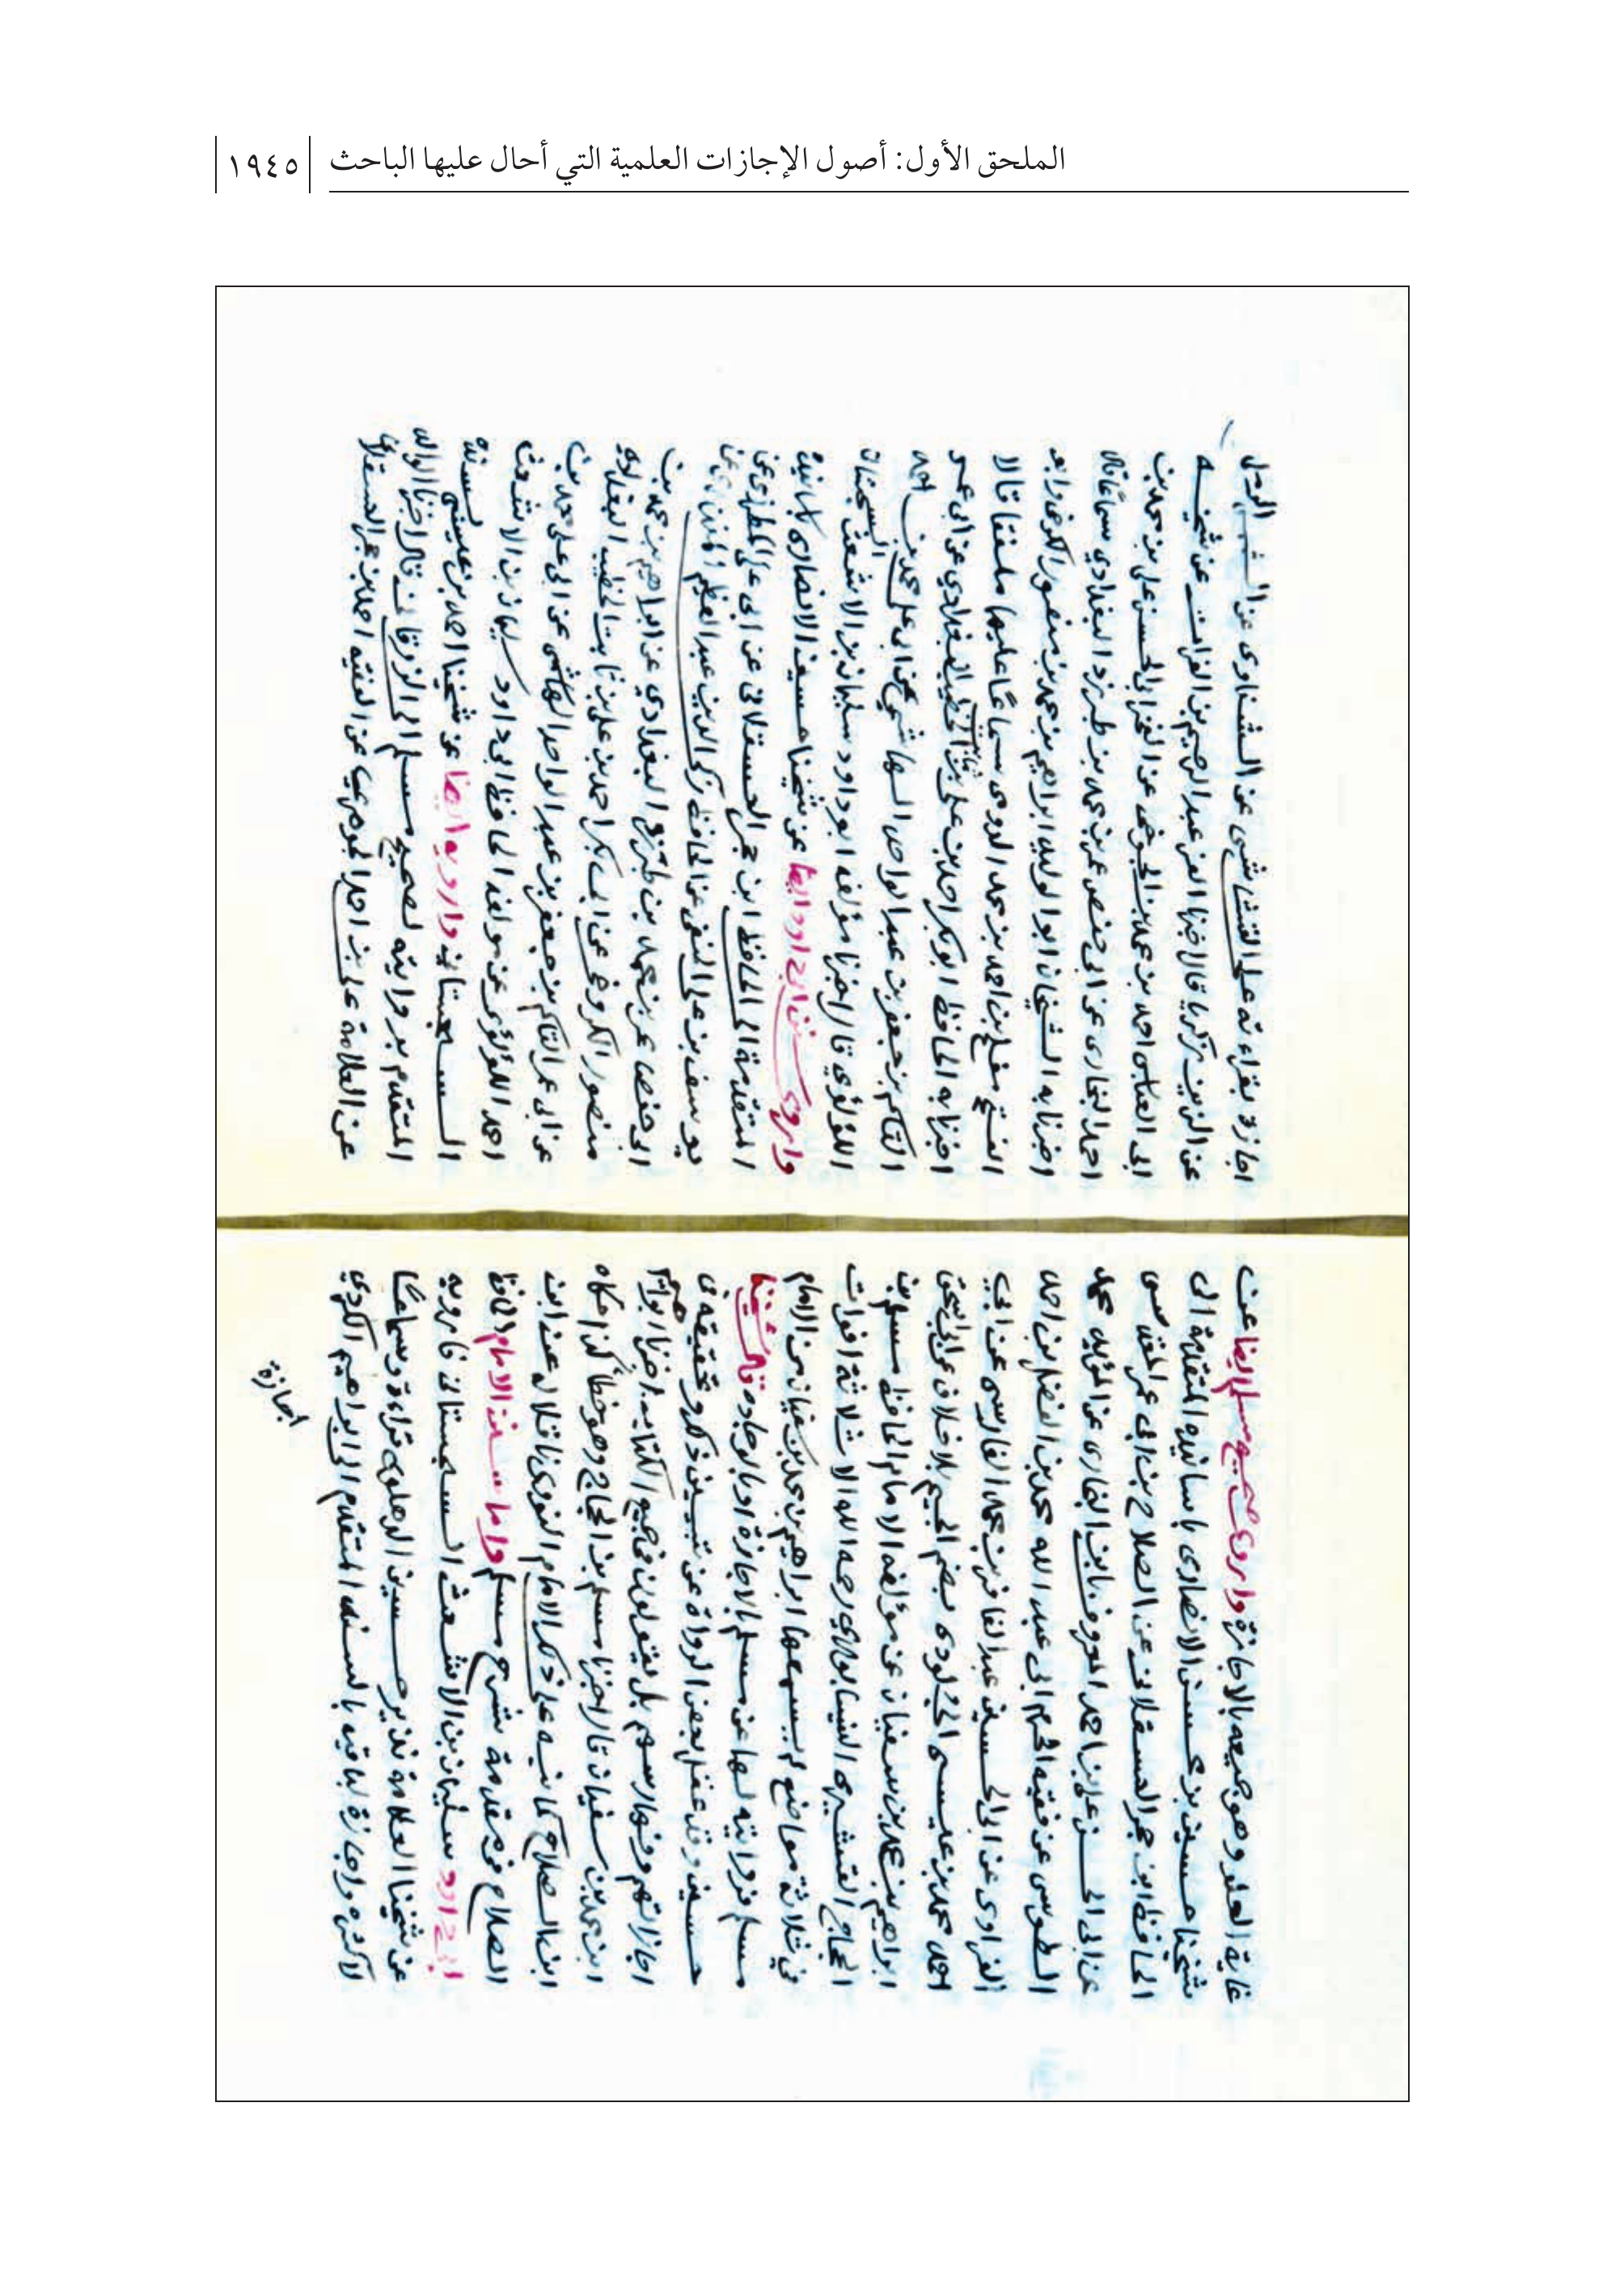 الملحق الأول: أصول الإجازات العلمية التي أحال عليها الباحث ١٩٤٥
غاية العلو وهو جميعه بالاجازة واروى صحيح مسلم ايضا عن
شيخنا حسين بن محسن الانصارى باسانيده المتقدمة الى
الحافظ ابن حجر العسقلانى عن الصلاح بن ابى عمر المقدسى
عن ابى الحسن على بن احمد المعروف بابن البخارى عن المؤيد محمد
الطوسى عن فقيه الحرم ابى عبد الله محمد بن الفضل بن احمد
الفراوى عن ابى الحسين عبد الغافر بن محمد الفارسى عن ابي
احمد محمد بن عيسى الجلودى بضم الجيم بلا خلاف عن ابى اسحق
ابراهيم بن محمد بن سفيان عن مؤلفه الامام الحافظ مسلم بن
الحجاج القشيرى النيسابورى رحمه الله الا ثلاثة افوات
فى ثلاثة مواضع لم يسمعها ابراهيم بن محمد بن سفيان من الامام
مسلم فروايته لها عن مسلم بالاجازة او بالوجادة قال شيخنا
حسين وقد غفل بعض الرواة عن تبيين ذلك وتحقيقه فى
اجازاتهم وفهارسهم بل يقولون فى جميع الكتاب اخبرنا ابراهيم
ابن محمد بن سفيان قال اخبرنا مسلم بن الحجاج وهو خطأ كذا حكاه
ابن الصلاح كما نبه على ذلك الامام النووى ناقلا له عن ابن
الصلاح فى مقدمة شرح مسلم واما سنن الامام الحافظ
ابى داود سليمان بن الاشعث السجستانى فارويه
عن شيخنا العلامة نذير حسين الدهلوى قراءة وسماعًا
لاكثره واجازة لباقيه بالسند المتقدم الى ابراهيم الكردي
اجازة
اجازة بقراءته على القشاشى عن الشناوى عن الشمس الرملى
عن الزين زكريا قال اخبرنا العز عبد الرحيم بن الفرات عن شيخه
ابى العباس احمد بن محمد بن الجوخى عن الفخر ابى الحسن على بن محمد بن
احمد البخارى عن ابى حفص عمر بن محمد بن طبرزد البغدادي سماعا قال
اخبرنا به الشيخان ابو الوليد ابراهيم بن محمد بن منصور الكرخى وابو
الفتح مفلح بن احمد بن محمد الدومى سماعًا عليهما ملفقا قالا
اخبرنا به الحافظ ابو بكر احمد بن على بن ثابت الخطيب البغدادي عن ابى عمر
القاسم بن جعفر بن عبد الواحد الهاشمي عن ابى على محمد بن احمد
اللؤلؤي قال اخبرنا مؤلفه ابو داود سليمان بن الاشعث السجستانى
واروى سنن ابى داود ايضا عن شيخنا حسين الانصارى باسانيده
المتقدمة الى الحافظ ابن حجر العسقلانى عن ابى على المطرزى عن
يوسف بن على الحنفى عن الحافظ زكى الدين عبد العظيم المنذرى عن
ابى حفص عمر بن محمد بن طبرزد البغدادي عن ابراهيم بن محمد بن
منصور الكروخى عن ابى بكر احمد بن على بن ثابت الخطيب البغدادي
عن ابى عمر القاسم بن جعفر بن عبد الواحد الهاشمى عن ابى على محمد بن
احمد اللؤلؤى عن مولفه الحافظ ابى داود سليمان بن الاشعث
السجستانى وارويه ايضا عن شيخنا احمد بن عيسى بسنده
المتقدم بروايته لصحيح مسلم الى الزرقانى قال اخبرنا الوالد
عن العلامة على بن احمد الاجهورى عن الفقيه احمد بن حجر العسقلانى